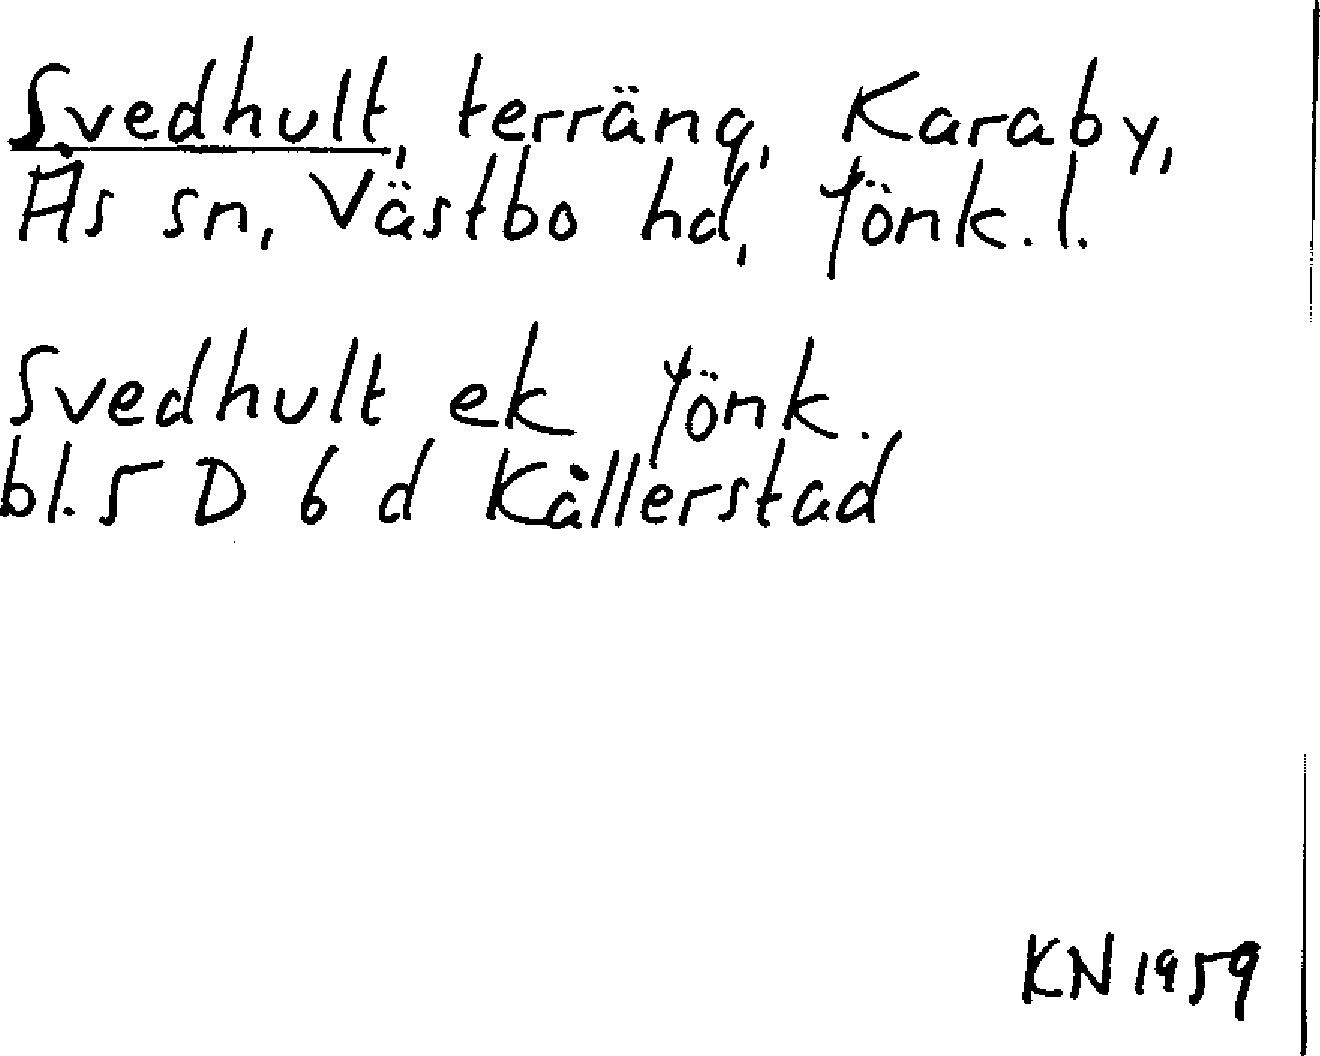 Svedhult, terräng, Karaby,
Ås sn, Västbo hd, Jönk. l.
Svedhult ek Jönk.
bl. 5 D 6 d Källerstad
KN 1959